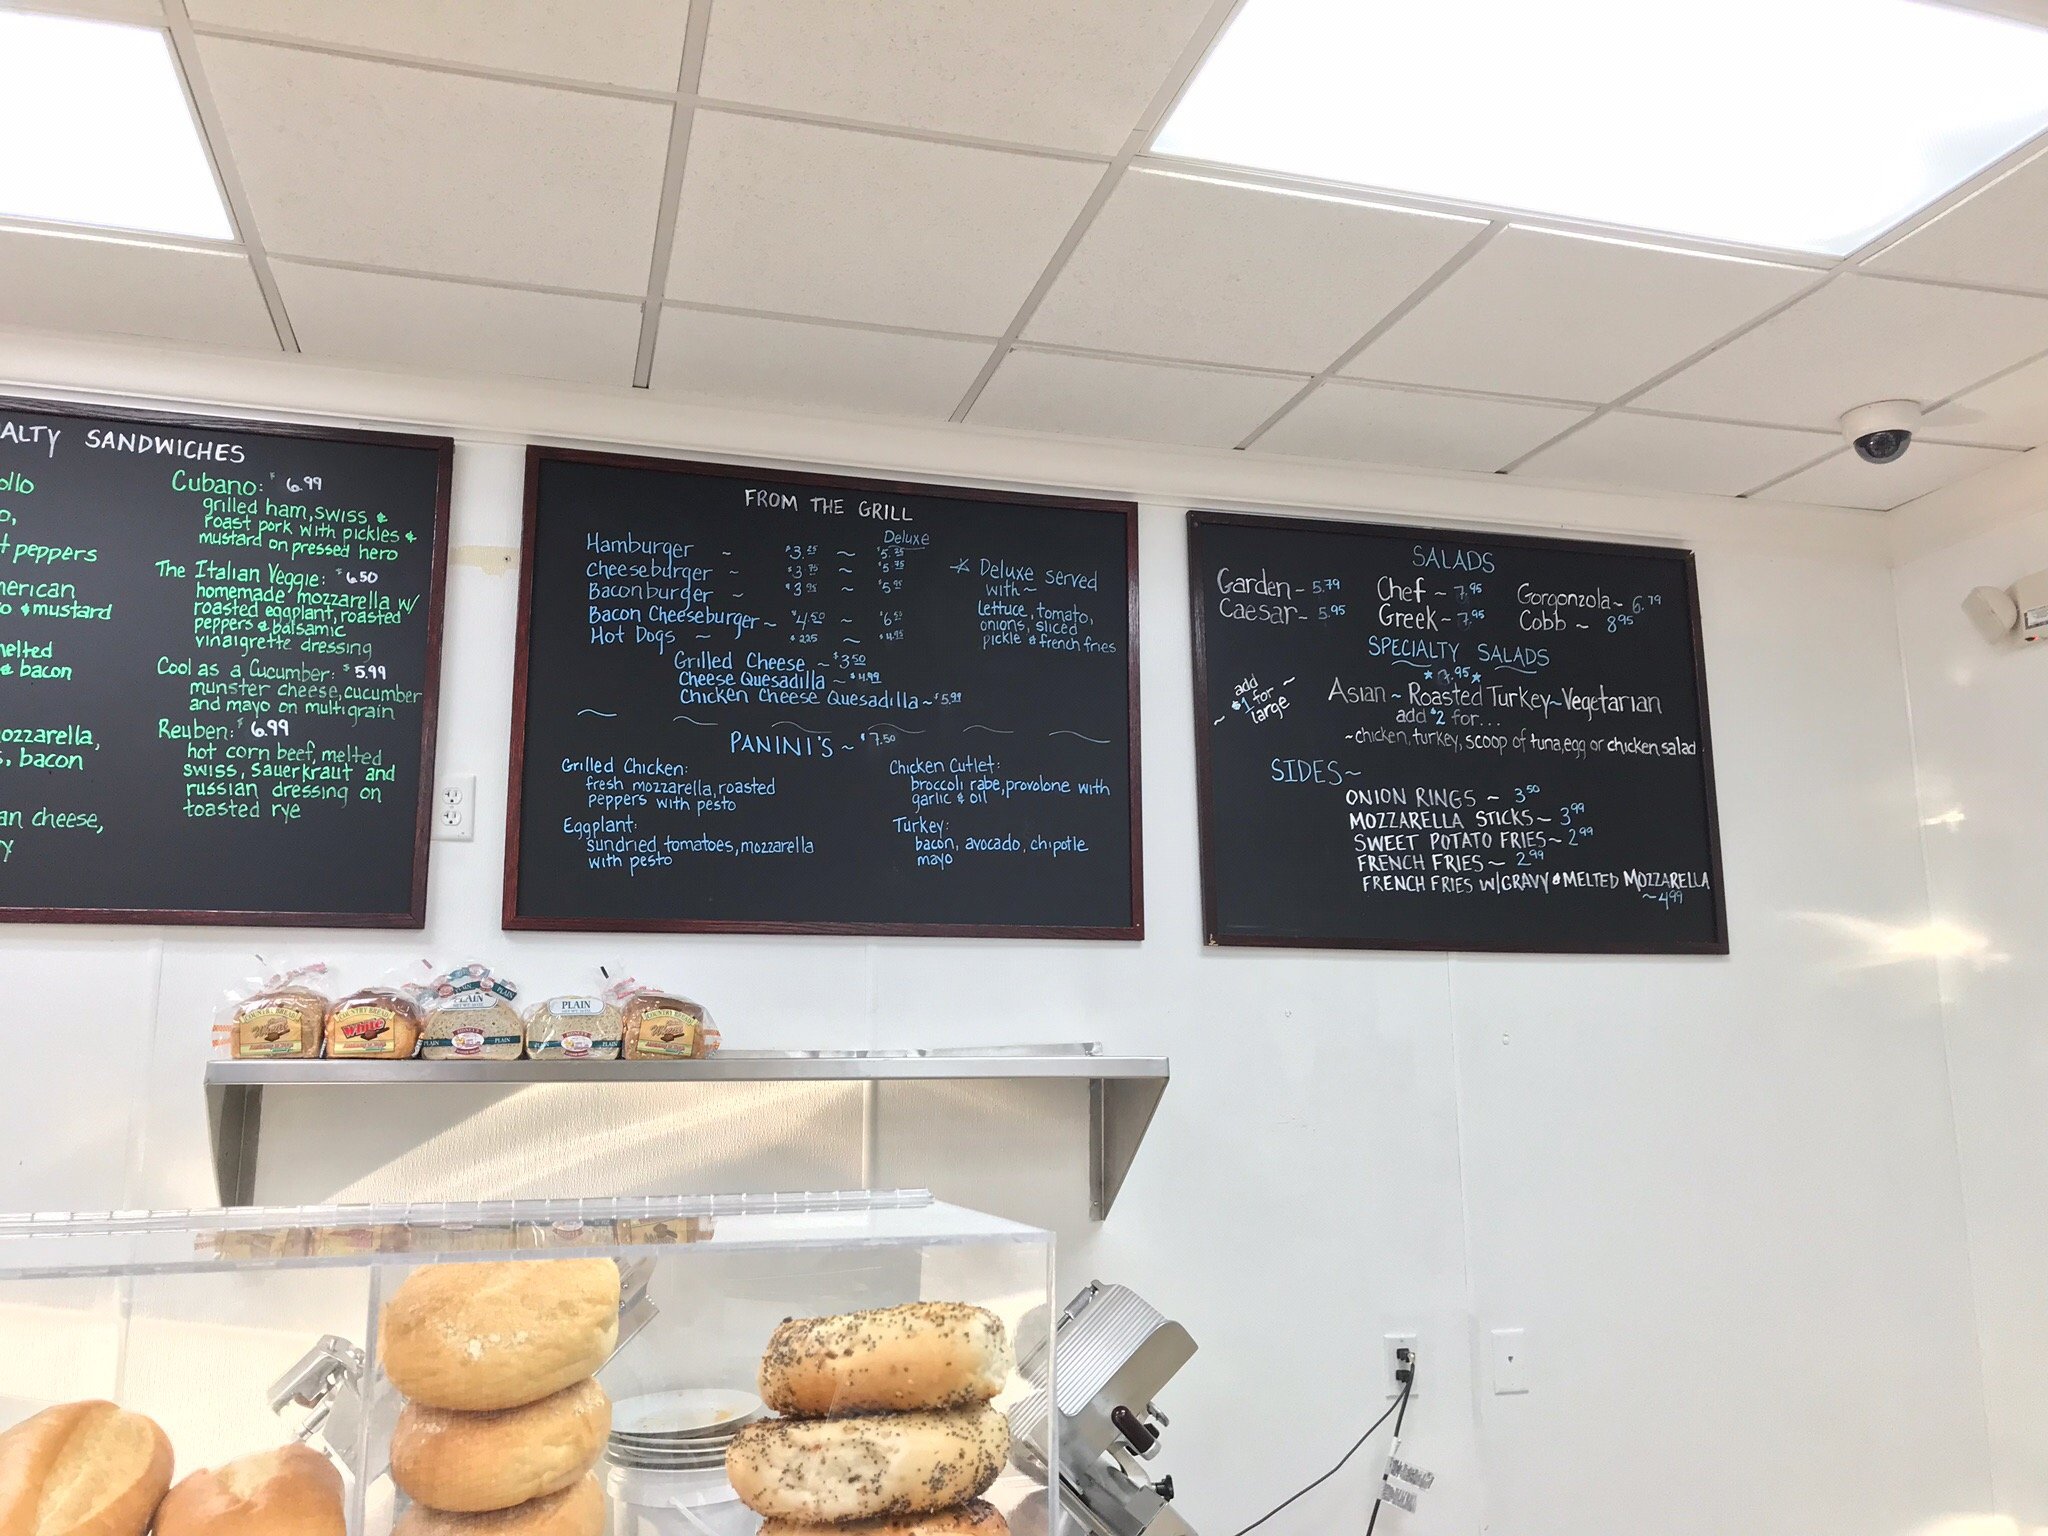 ALTY SANDWICHES
ollo
o,
t peppers
merican
o & mustard
melted
& bacon
mozzarella,
s, bacon
an cheese,
y
Cubano: $6.99
grilled ham, swiss, &
roast pork with pickles &
mustard on pressed hero
The Italian Veggie: $6.50
homemade mozzarella w/
roasted eggplant, roasted
peppers & balsamic
vinaigrette dressing
Cool as a Cucumber: $5.99
munster cheese, cucumber
and mayo on multigrain
Reuben: $6.99
hot corn beef, melted
swiss, sauerkraut and
russian dressing on
toasted rye
FROM THE GRILL
Deluxe
Hamburger ~ $3.25 ~ $5.25
Cheeseburger ~ $3.75 ~ $5.75
Baconburger ~ $3.95 ~ $5.95
Bacon Cheeseburger ~ $4.50 ~ $6.50
Hot Dogs ~ $2.25 ~ $4.95
* Deluxe served
with ~
lettuce, tomato,
onions, sliced
pickle & french fries
Grilled Cheese ~ $3.50
Cheese Quesadilla ~ $4.99
Chicken Cheese Quesadilla ~ $5.99
PANINI'S ~ $7.50
Grilled Chicken:
fresh mozzarella, roasted
peppers with pesto
Eggplant:
sundried tomatoes, mozzarella
with pesto
Chicken Cutlet:
broccoli rabe, provolone with
garlic & oil
Turkey:
bacon, avocado, chipotle
mayo
SALADS
Garden ~ 5.79 Chef ~ 7.95 Gorgonzola ~ 6.79
Caesar ~ 5.95 Greek ~ 7.95 Cobb ~ 8.95
SPECIALTY SALADS
* 7.95 *
Asian ~ Roasted Turkey ~ Vegetarian
add $2 for...
~ chicken, turkey, scoop of tuna, egg or chicken salad
add
$1 for
large
SIDES ~
ONION RINGS ~ 3.50
MOZZARELLA STICKS ~ 3.99
SWEET POTATO FRIES ~ 2.99
FRENCH FRIES ~ 2.99
FRENCH FRIES W/GRAVY & MELTED MOZZARELLA
~ 4.99
COUNTRY BREAD
Wheat
COUNTRY BREAD
White
PLAIN
PLAIN
PLAIN
PLAIN
PLAIN
COUNTRY BREAD
Wheat